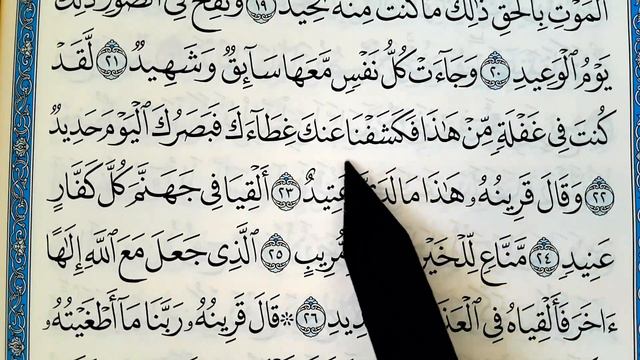 ٱلْمَوْتِ بِٱلْحَقِّ ذَٰلِكَ مَا كُنتَ مِنْهُ تَحِيدُ ١٩ وَنُفِخَ فِى ٱلصُّورِ ذَٰلِكَ
يَوْمُ ٱلْوَعِيدِ ٢٠ وَجَآءَتْ كُلُّ نَفْسٍ مَّعَهَا سَآئِقٌ وَشَهِيدٌ ٢١ لَّقَدْ
كُنتَ فِى غَفْلَةٍ مِّنْ هَٰذَا فَكَشَفْنَا عَنكَ غِطَآءَكَ فَبَصَرُكَ ٱلْيَوْمَ حَدِيدٌ
٢٢ وَقَالَ قَرِينُهُۥ هَٰذَا مَا لَدَ عَتِيدٌ ٢٣ أَلْقِيَا فِى جَهَنَّمَ كُلَّ كَفَّارٍ
عَنِيدٍ ٢٤ مَّنَّاعٍ لِّلْخَيْرِ مُّرِيبٍ ٢٥ ٱلَّذِى جَعَلَ مَعَ ٱللَّهِ إِلَٰهًا
ءَاخَرَ فَأَلْقِيَاهُ فِى ٱلْعَذَ دِيدِ ٢٦ ۞ قَالَ قَرِينُهُۥ رَبَّنَا مَآ أَطْغَيْتُهُۥ